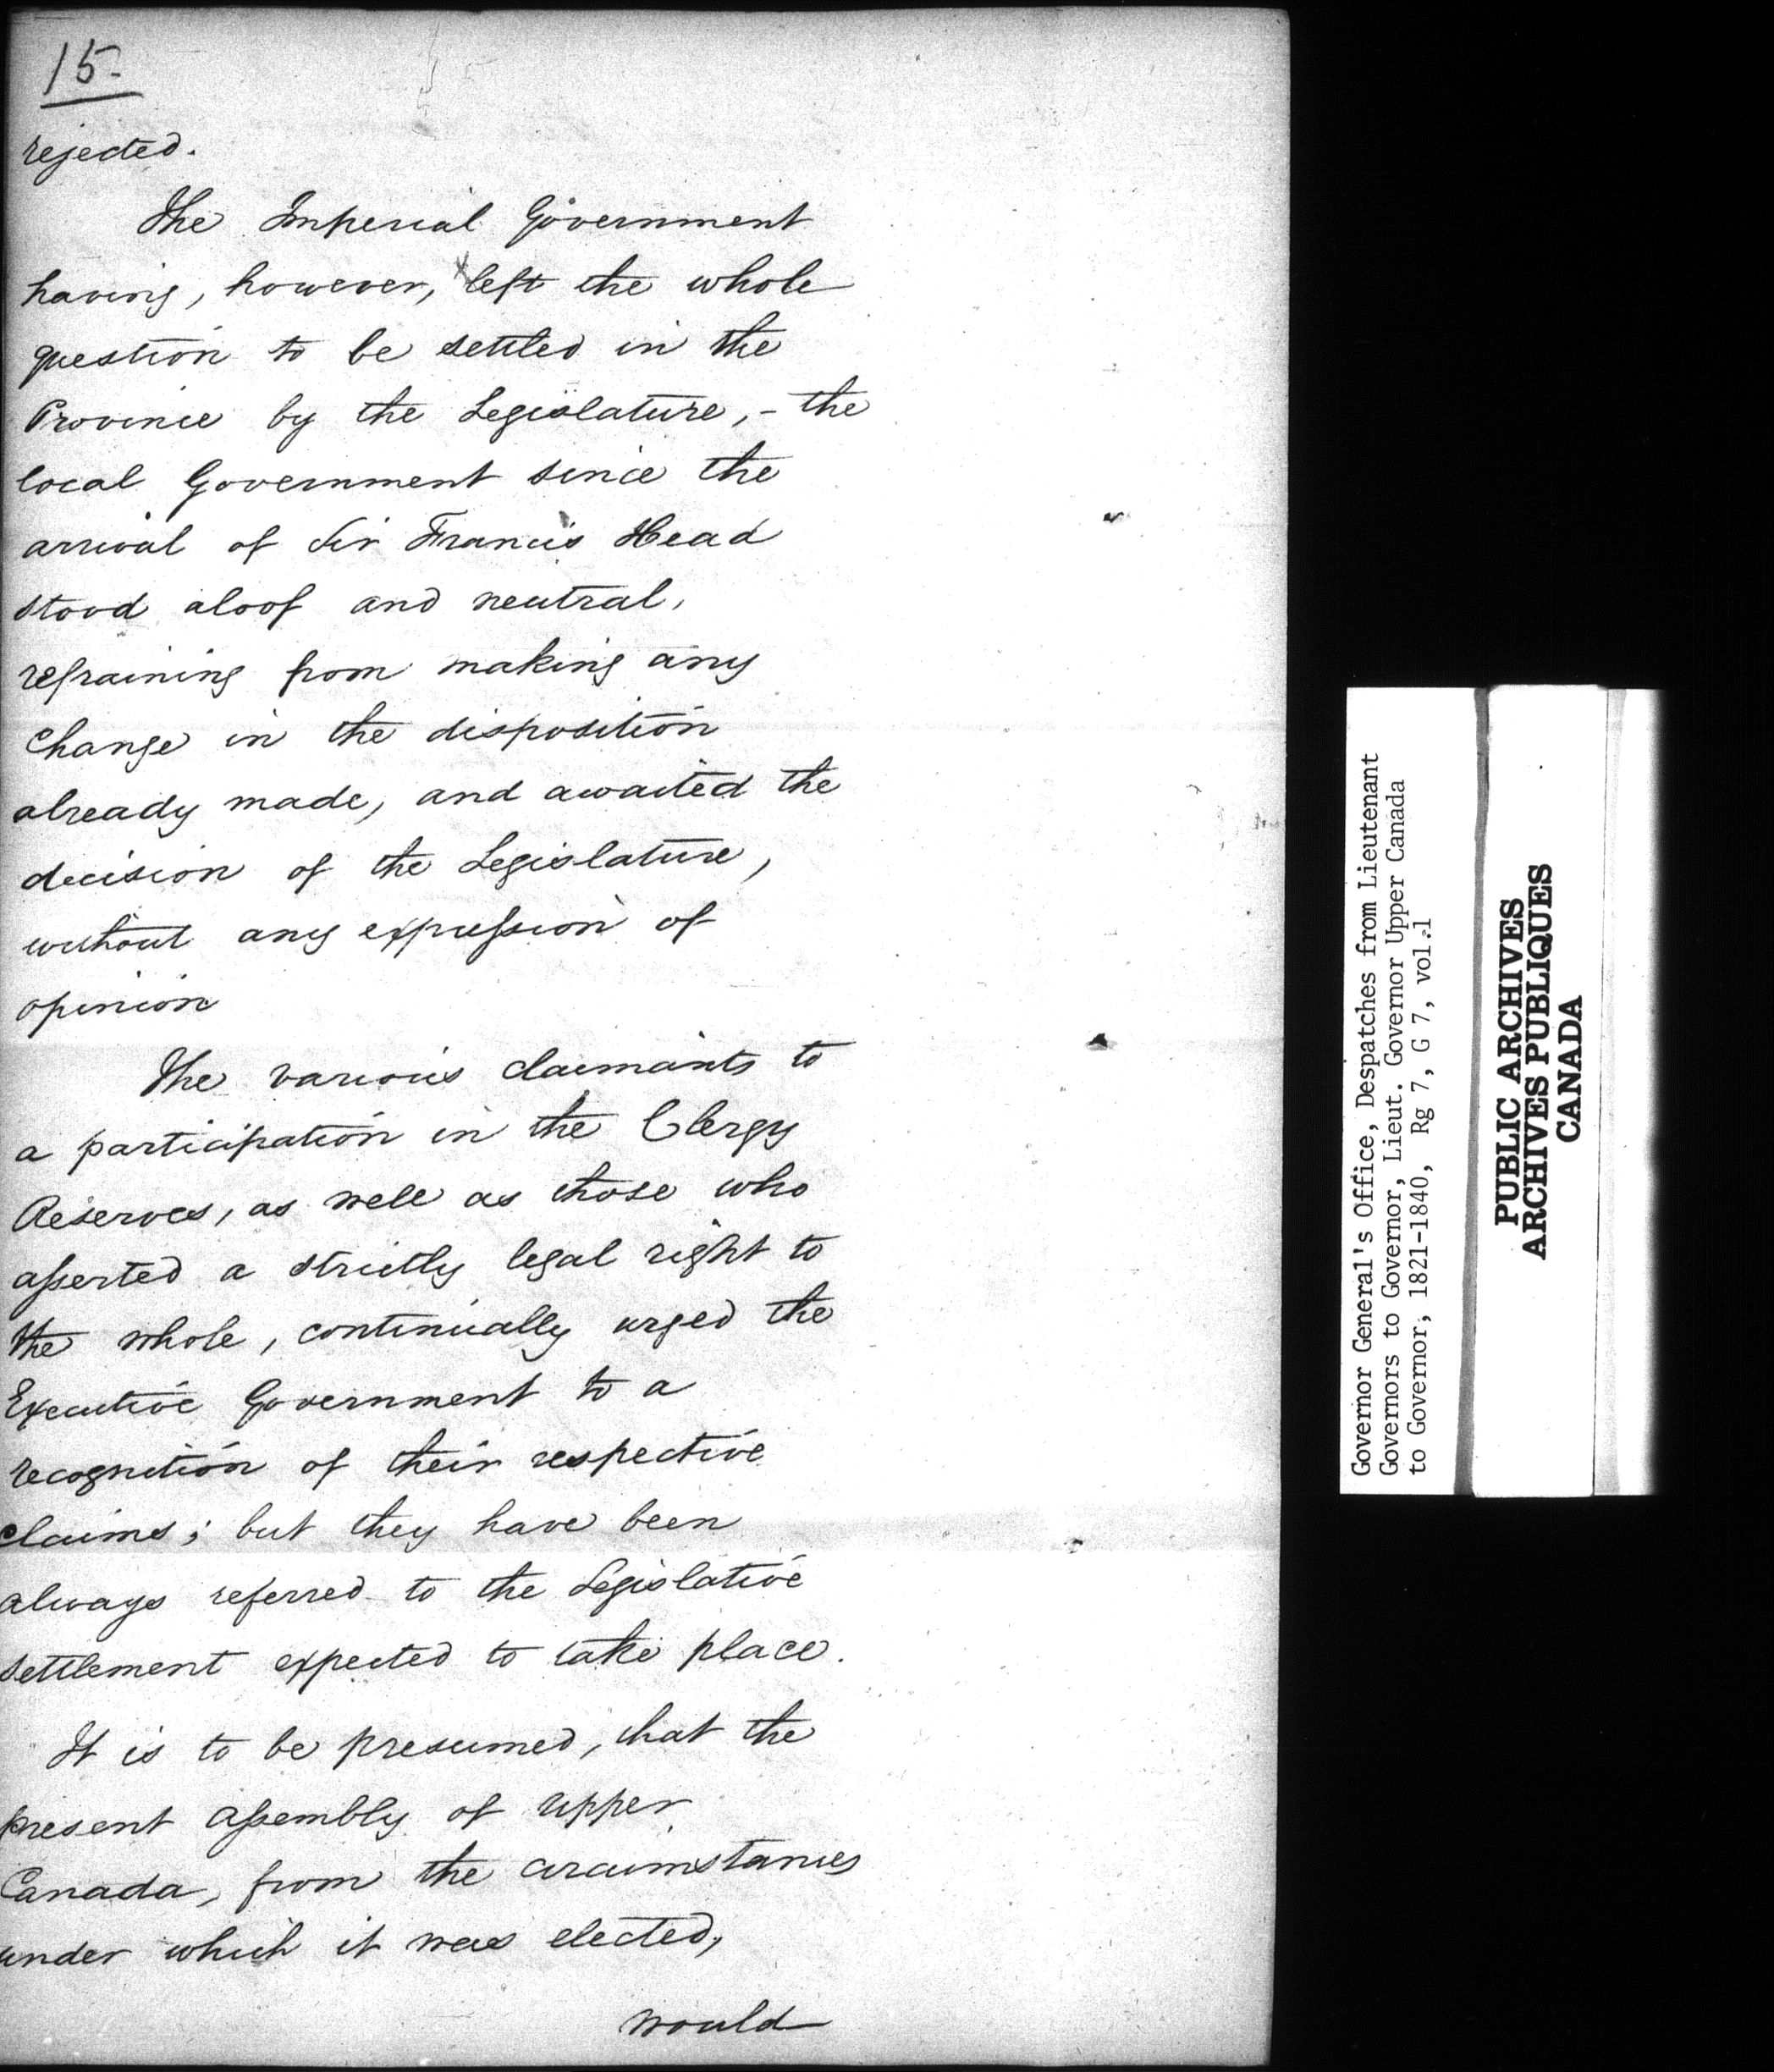 15.
rejected.
The Imperial Government
having, however, left the whole
question to be settled in the
Province by the Legislature, - the
local Government since the
arrival of Sir Francis Head
stood aloof and neutral,
refraining from making any
change in the disposition
already made, and awaited the
decision of the Legislature,
without any expression of
opinion
The various claimants to
a participation in the Clergy
Reserves, as well as those who
asserted a strictly legal right to
the whole, continually urged the
Executive Government to a
recognition of their respective
claims; but they have been
always referred to the Legislative
settlement expected to take place.
It is to be presumed, that the
present assembly of Upper
Canada, from the circumstances
under which it was elected,
would
Governor General's Office, Despatches from Lieutenant
Governors to Governor, Lieut. Governor Upper Canada
to Governor, 1821-1840, Rg 7, G 7, vol.1
PUBLIC ARCHIVES
ARCHIVES PUBLIQUES
CANADA